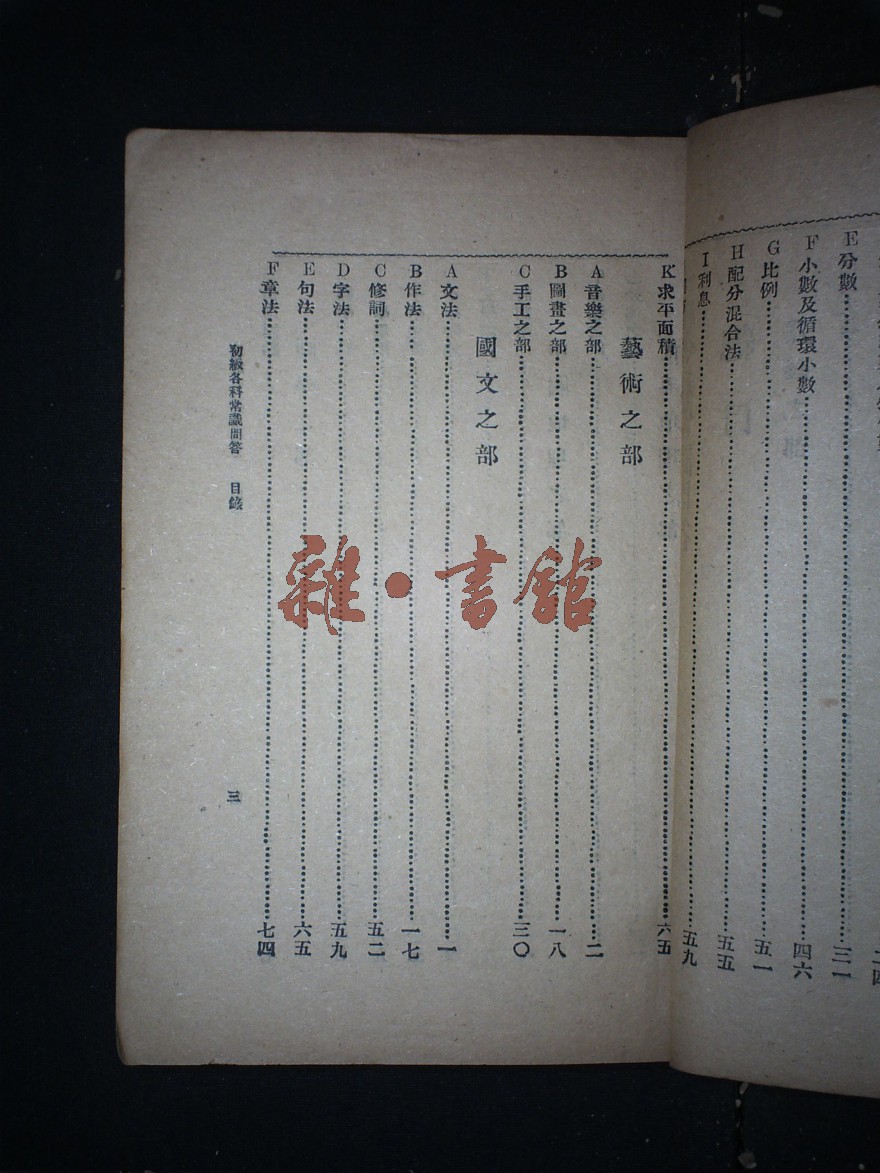 E 分數…三一
F 小數及循環小數…四六
G 比例…五一
H 配分混合法…五五
I 利息…五九
K 求平面積…六五
藝術之部
A 音樂之部…二
B 圖畫之部…一八
C 手工之部…三〇
國文之部
A 文法…一
B 作法…一七
C 修詞…五二
D 字法…五九
E 句法…六五
F 章法…七四
初級各科常識問答 目錄
三
雜·書館